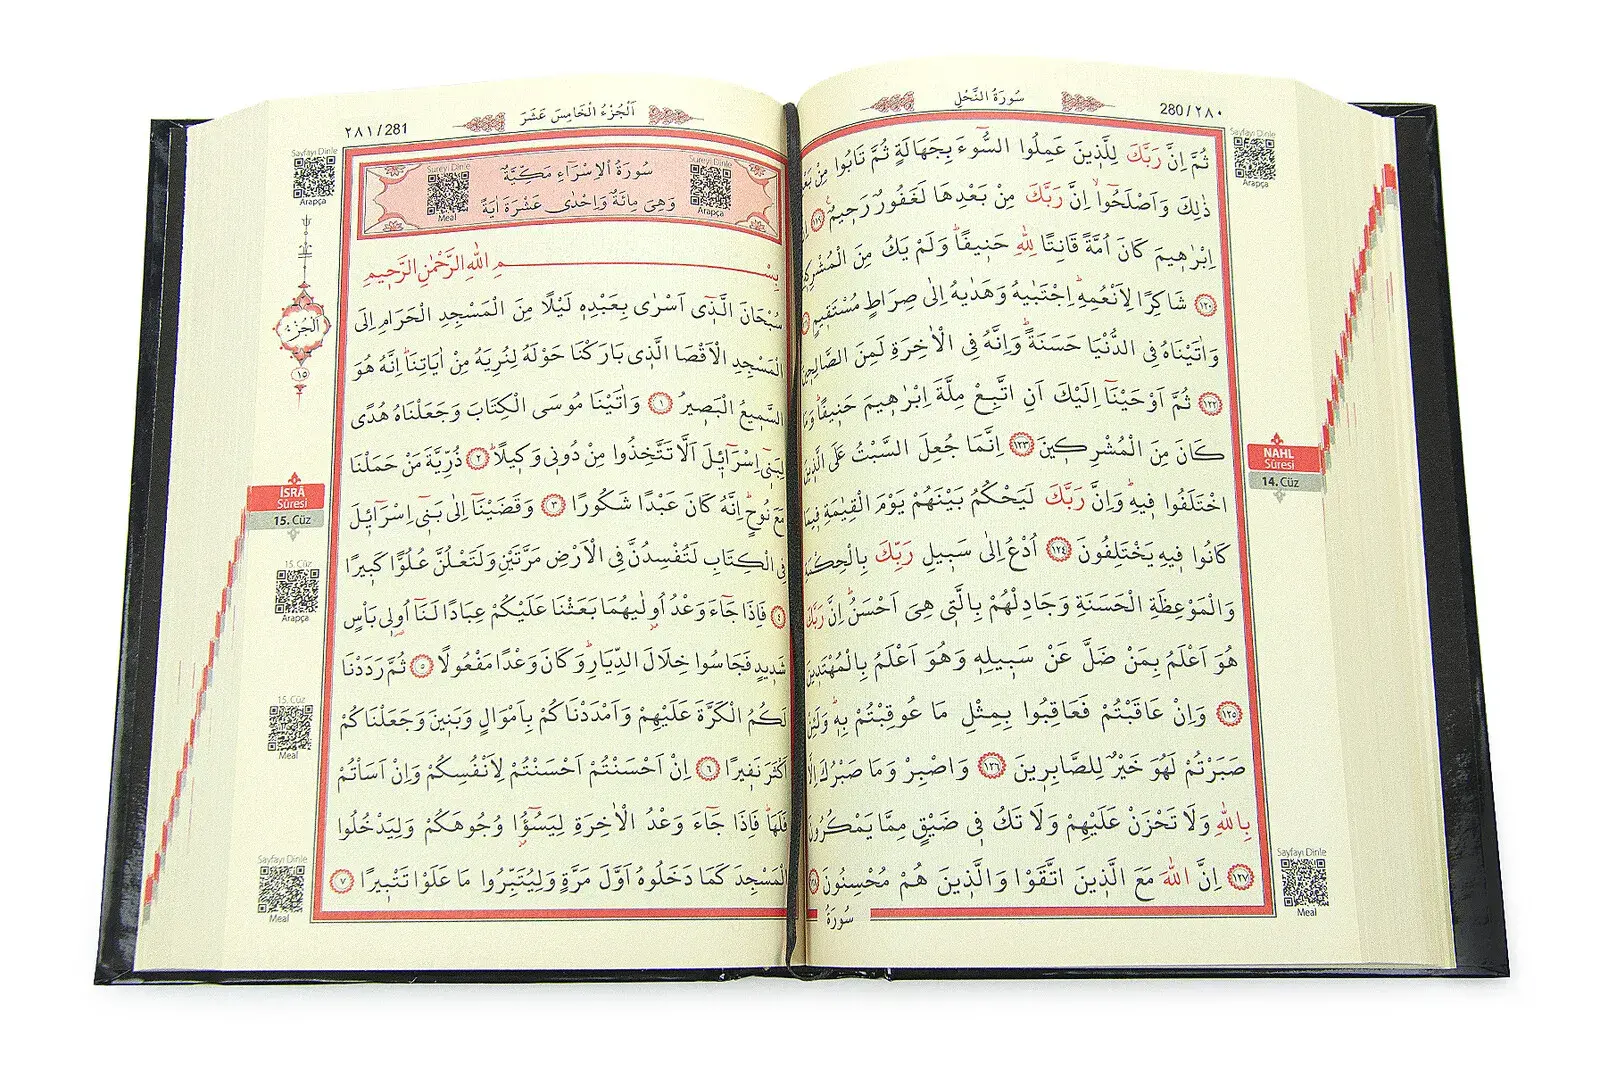 سُورَةُ النَّحْلِ
280 / ٢٨٠
Sayfayı Dinle
Arapça
ثُمَّ اِنَّ رَبَّكَ لِلَّذ۪ينَ عَمِلُوا السُّٓوءَ بِجَهَالَةٍ ثُمَّ تَابُوا مِنْ
ذٰلِكَ وَاَصْلَحُٓوا اِنَّ رَبَّكَ مِنْ بَعْدِهَا لَغَفُورٌ رَح۪يمٌ ﴿١١٩﴾
اِبْرٰه۪يمَ كَانَ اُمَّةً قَانِتًا لِلّٰهِ حَن۪يفًا وَلَمْ يَكُ مِنَ الْمُشْرِك۪ينَ
﴿١٢٠﴾ شَاكِرًا لِاَنْعُمِهِ اِجْتَبٰيهُ وَهَدٰيهُ اِلٰى صِرَاطٍ مُسْتَق۪يمٍ
وَاٰتَيْنَاهُ فِي الدُّنْيَا حَسَنَةً وَاِنَّهُ فِي الْاٰخِرَةِ لَمِنَ الصَّالِح۪ينَ
﴿١٢٢﴾ ثُمَّ اَوْحَيْنَٓا اِلَيْكَ اَنِ اتَّبِعْ مِلَّةَ اِبْرٰه۪يمَ حَن۪يفًا وَمَا
كَانَ مِنَ الْمُشْرِك۪ينَ ﴿١٢٣﴾ اِنَّمَا جُعِلَ السَّبْتُ عَلَى الَّذ۪ينَ
اخْتَلَفُوا ف۪يهِ وَاِنَّ رَبَّكَ لَيَحْكُمُ بَيْنَهُمْ يَوْمَ الْقِيٰمَةِ ف۪يمَا
كَانُوا ف۪يهِ يَخْتَلِفُونَ ﴿١٢٤﴾ اُدْعُ اِلٰى سَب۪يلِ رَبِّكَ بِالْحِكْمَةِ
وَالْمَوْعِظَةِ الْحَسَنَةِ وَجَادِلْهُمْ بِالَّت۪ي هِيَ اَحْسَنُ اِنَّ رَبَّكَ
هُوَ اَعْلَمُ بِمَنْ ضَلَّ عَنْ سَب۪يلِه۪ وَهُوَ اَعْلَمُ بِالْمُهْتَد۪ينَ
﴿١٢٥﴾ وَاِنْ عَاقَبْتُمْ فَعَاقِبُوا بِمِثْلِ مَا عُوقِبْتُمْ بِه۪ وَلَئِنْ
صَبَرْتُمْ لَهُوَ خَيْرٌ لِلصَّابِر۪ينَ ﴿١٢٦﴾ وَاصْبِرْ وَمَا صَبْرُكَ اِلَّا
بِاللّٰهِ وَلَا تَحْزَنْ عَلَيْهِمْ وَلَا تَكُ ف۪ي ضَيْقٍ مِمَّا يَمْكُرُونَ
﴿١٢٧﴾ اِنَّ اللّٰهَ مَعَ الَّذ۪ينَ اتَّقَوْا وَالَّذ۪ينَ هُمْ مُحْسِنُونَ ﴿١٢٨﴾
سُورَةُ
NAHL
Sûresi
14. Cüz
Sayfayı Dinle
Meal
٢٨١ / 281
اَلْجُزْءُ الْخَامِسَ عَشَرَ
Sayfayı Dinle
Arapça
Sureyi Dinle
Meal
Sureyi Dinle
Arapça
سُورَةُ الْاِسْرَٓاءِ مَكِّيَّةٌ
وَهِيَ مِائَةٌ وَاِحْدٰى عَشْرَةَ اٰيَةً
بِسْمِ اللّٰهِ الرَّحْمٰنِ الرَّح۪يمِ
سُبْحَانَ الَّذ۪ٓي اَسْرٰى بِعَبْدِه۪ لَيْلًا مِنَ الْمَسْجِدِ الْحَرَامِ اِلَى
الْمَسْجِدِ الْاَقْصَا الَّذ۪ي بَارَكْنَا حَوْلَهُ لِنُرِيَهُ مِنْ اٰيَاتِنَا اِنَّهُ هُوَ
السَّم۪يعُ الْبَص۪يرُ ﴿١﴾ وَاٰتَيْنَا مُوسَى الْكِتَابَ وَجَعَلْنَاهُ هُدًى
لِبَن۪ٓي اِسْرَٓائ۪لَ اَلَّا تَتَّخِذُوا مِنْ دُون۪ي وَك۪يلًا ﴿٢﴾ ذُرِّيَّةَ مَنْ حَمَلْنَا
مَعَ نُوحٍ اِنَّهُ كَانَ عَبْدًا شَكُورًا ﴿٣﴾ وَقَضَيْنَٓا اِلٰى بَن۪ٓي اِسْرَٓائ۪لَ
فِي الْكِتَابِ لَتُفْسِدُنَّ فِي الْاَرْضِ مَرَّتَيْنِ وَلَتَعْلُنَّ عُلُوًّا كَب۪يرًا
﴿٤﴾ فَاِذَا جَٓاءَ وَعْدُ اُو۫لٰيهُمَا بَعَثْنَا عَلَيْكُمْ عِبَادًا لَنَٓا اُو۬ل۪ي بَأْسٍ
شَد۪يدٍ فَجَاسُوا خِلَالَ الدِّيَارِ وَكَانَ وَعْدًا مَفْعُولًا ﴿٥﴾ ثُمَّ رَدَدْنَا
لَكُمُ الْكَرَّةَ عَلَيْهِمْ وَاَمْدَدْنَاكُمْ بِاَمْوَالٍ وَبَن۪ينَ وَجَعَلْنَاكُمْ
اَكْثَرَ نَف۪يرًا ﴿٦﴾ اِنْ اَحْسَنْتُمْ اَحْسَنْتُمْ لِاَنْفُسِكُمْ وَاِنْ اَسَأْتُمْ
فَلَهَا فَاِذَا جَٓاءَ وَعْدُ الْاٰخِرَةِ لِيَسُٓؤُ۫ا وُجُوهَكُمْ وَلِيَدْخُلُوا
الْمَسْجِدَ كَمَا دَخَلُوهُ اَوَّلَ مَرَّةٍ وَلِيُتَبِّرُوا مَا عَلَوْا تَتْب۪يرًا ﴿٧﴾
اَلْجُزْءُ
١٥
İSRÂ
Sûresi
15. Cüz
15. Cüz
Arapça
15. Cüz
Meal
Sayfayı Dinle
Meal